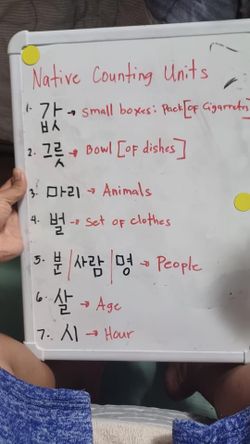 Native Counting Units
1. 갑 → Small boxes: Pack [of Cigarrettes]
2. 그릇 → Bowl [of dishes]
3. 마리 → Animals
4. 벌 → Set of clothes
5. 분/사람/명 → People
6. 살 → Age
7. 시 → Hour